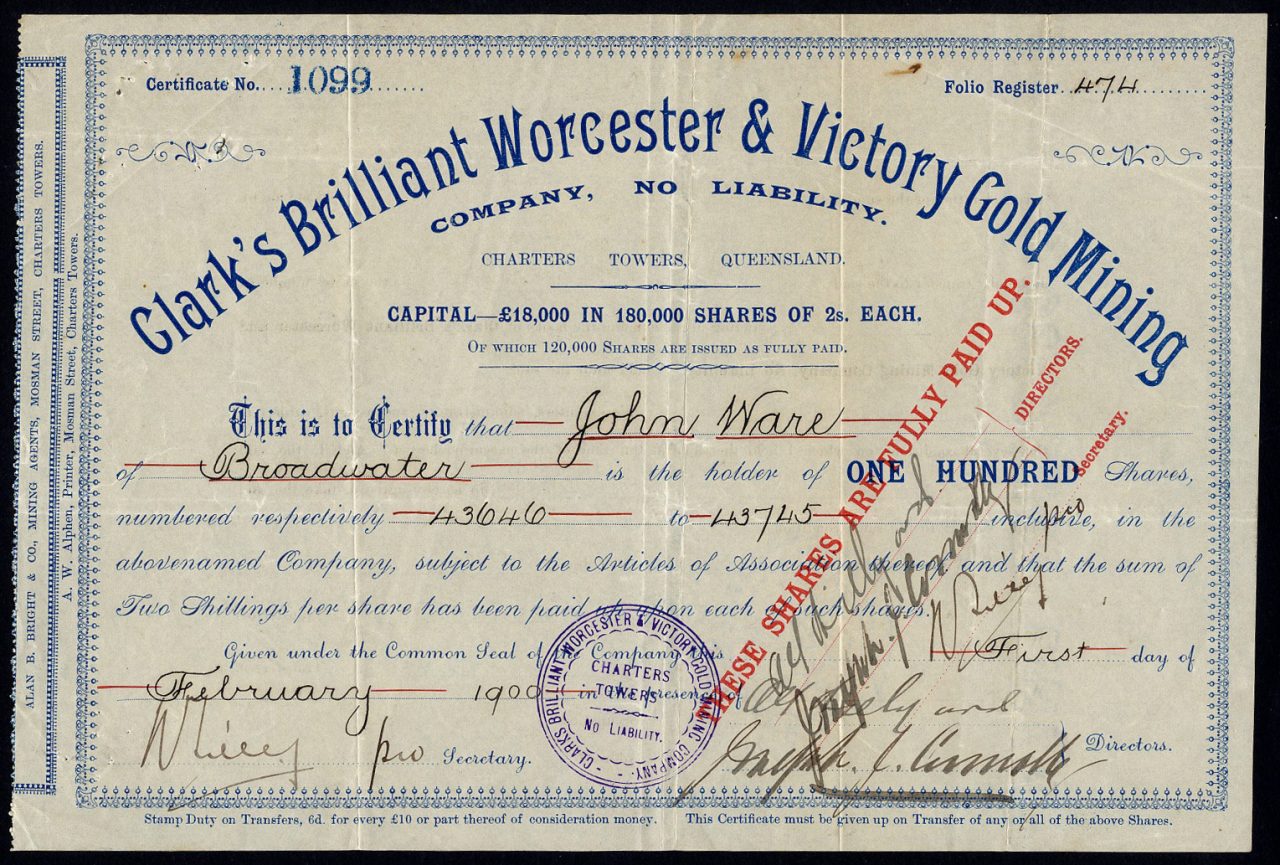 Certificate No. 1099
Folio Register 474
Clark's Brilliant Worcester & Victory Gold Mining
COMPANY, NO LIABILITY.
CHARTERS TOWERS, QUEENSLAND.
CAPITAL—£18,000 IN 180,000 SHARES OF 2s. EACH.
OF WHICH 120,000 SHARES ARE ISSUED AS FULLY PAID.
This is to Certify that John Ware
of Broadwater is the holder of ONE HUNDRED Shares,
numbered respectively 43646 to 43745 inclusive, in the
abovenamed Company, subject to the Articles of Association thereof, and that the sum of
Two Shillings per share has been paid up upon each of such shares.
Given under the Common Seal of the Company this First day of
February 1900 in the presence of
and
pro Secretary.
Joseph Directors.
THESE SHARES ARE FULLY PAID UP.
and
Joseph
DIRECTORS.
pro
Secretary.
CLARKS BRILLIANT WORCESTER & VICTORY GOLD MINING COMPANY
CHARTERS
TOWERS
NO LIABILITY.
Stamp Duty on Transfers, 6d. for every £10 or part thereof of consideration money. This Certificate must be given up on Transfer of any or all of the above Shares.
ALAN B. BRIGHT & CO., MINING AGENTS, MOSMAN STREET, CHARTERS TOWERS.
A. W. Alphen, Printer, Mosman Street, Charters Towers.